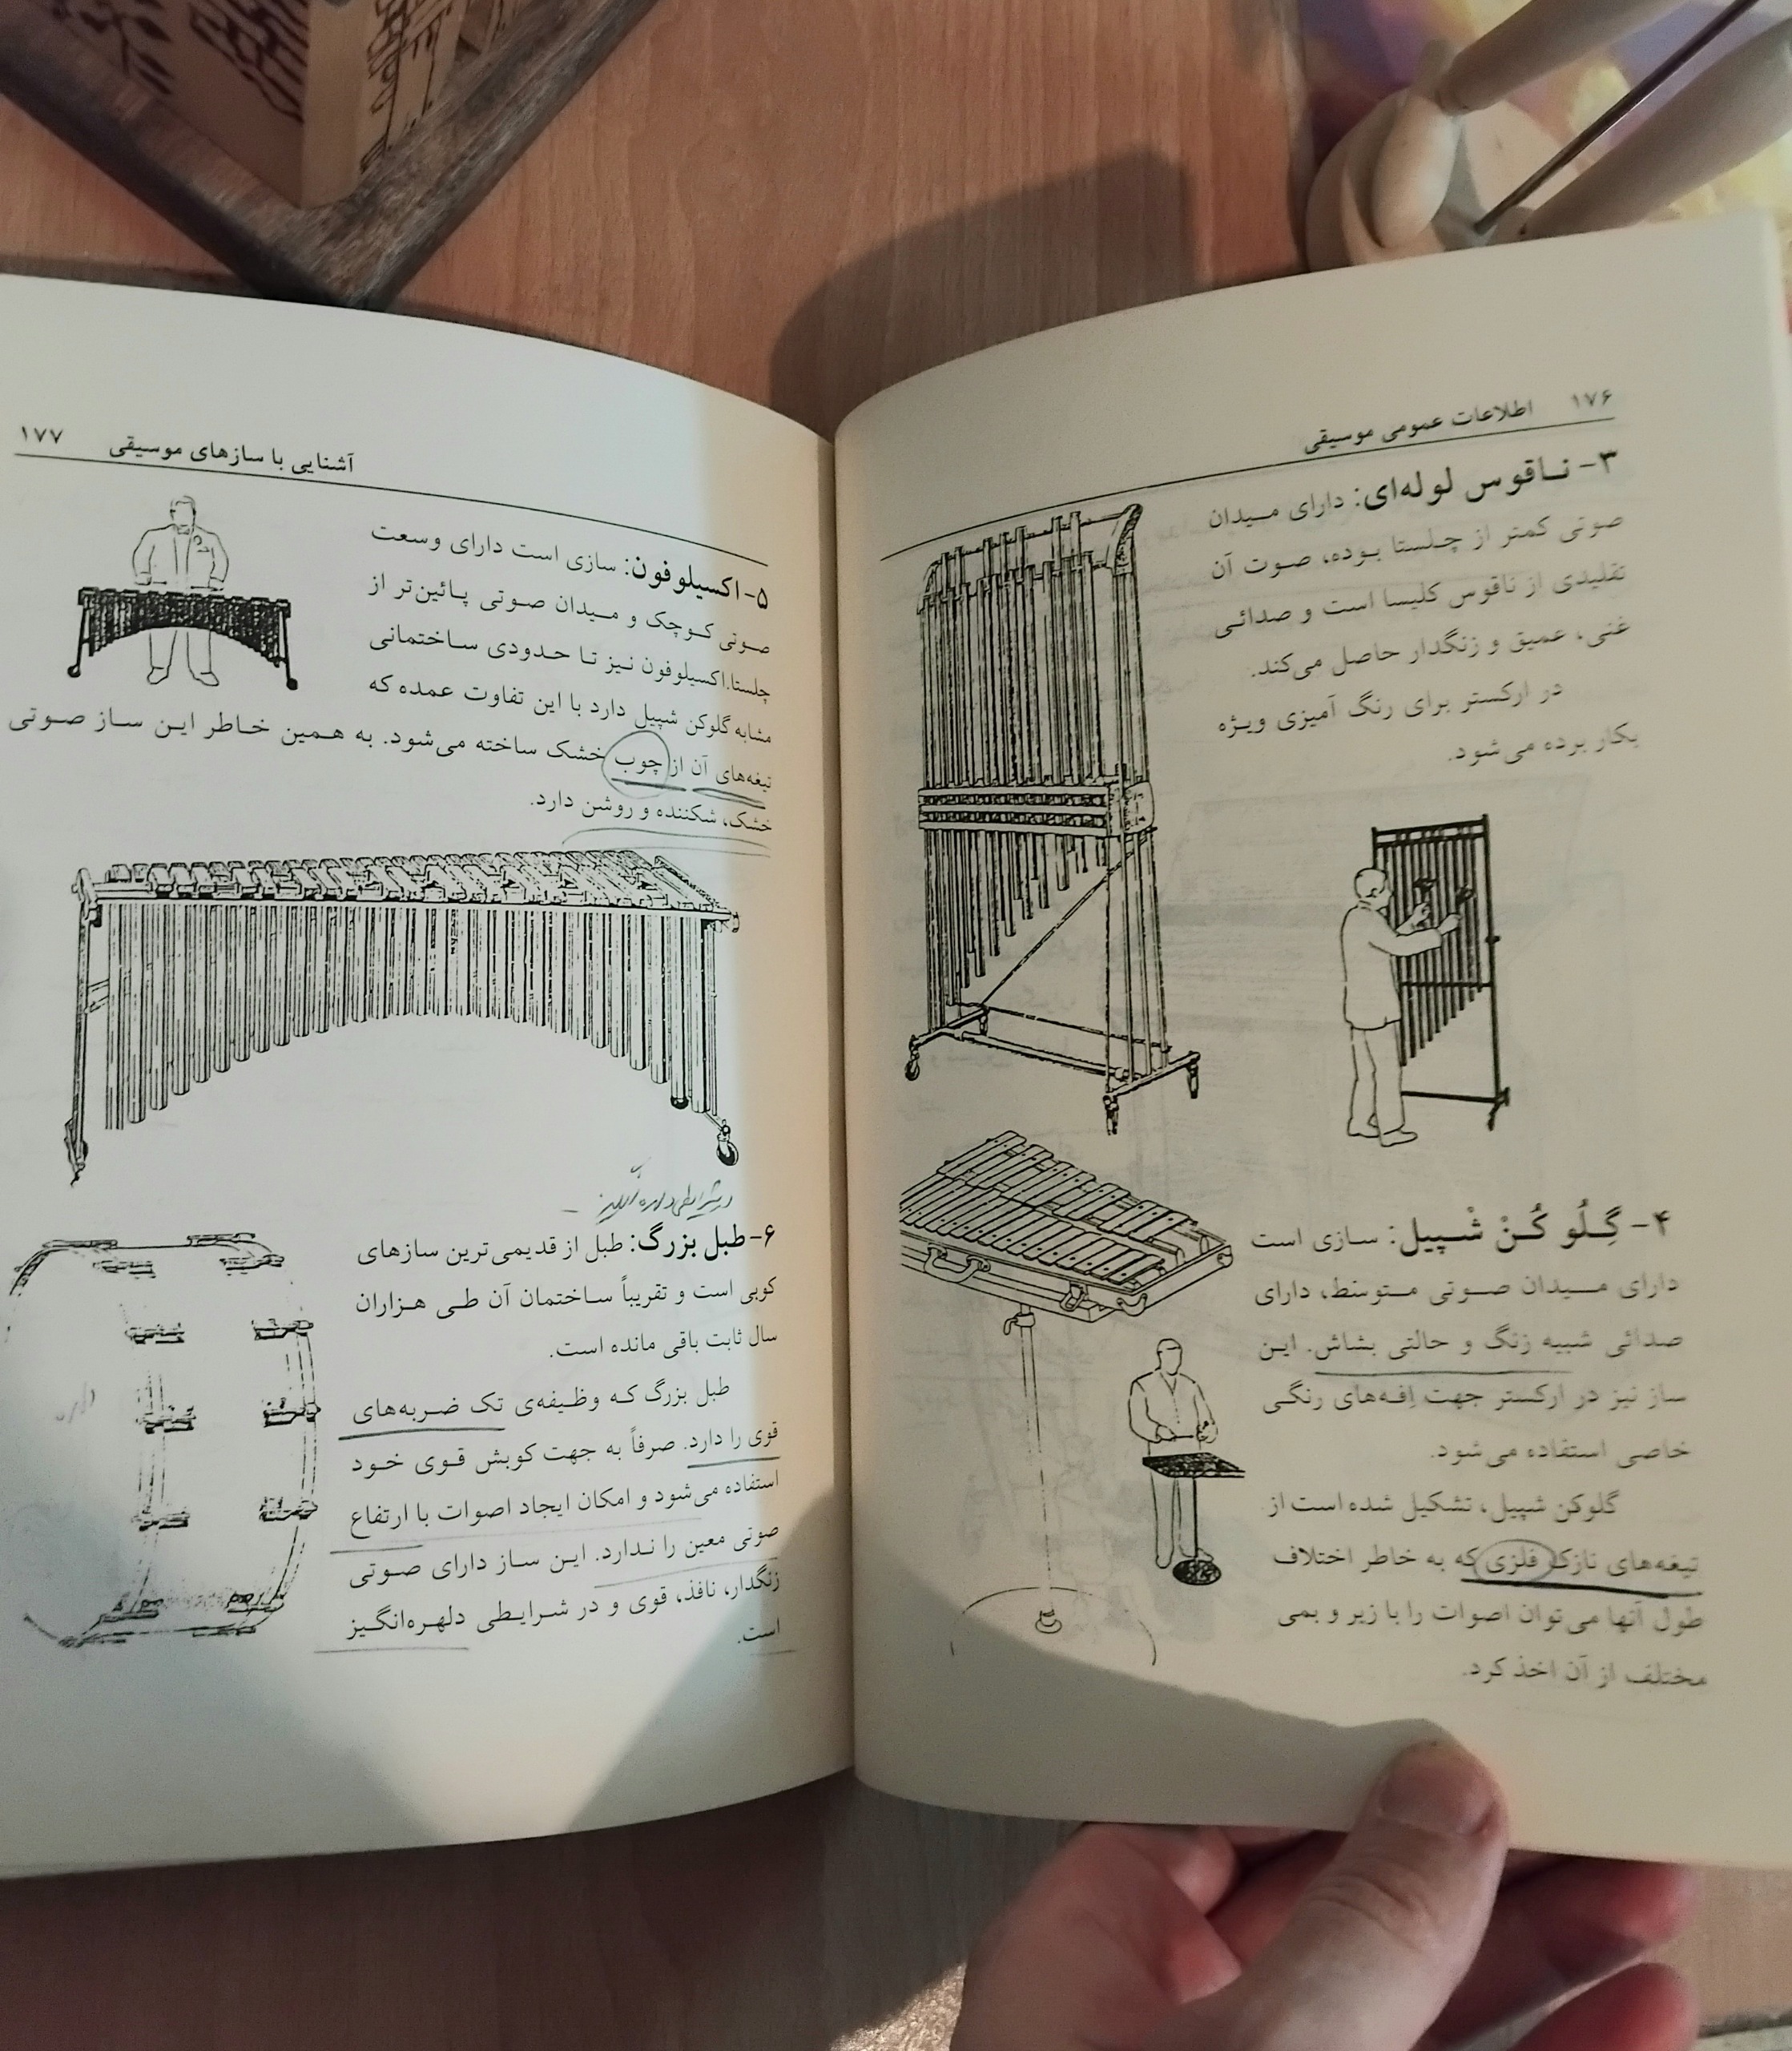 ۱۷۶ اطلاعات عمومی موسیقی
۳- نـاقوس لوله‌ای: دارای مـیدان
صوتی کمتر از چـلستا بـوده، صـوت آن
تقلیدی از ناقوس کلیسا است و صدائـی
غنی، عمیق و زنگدار حاصل می‌کند.
در ارکستر برای رنگ آمیزی ویـژه
بکار برده می‌شود.
۴- گِـلُو کُـنْ شْـپیل: سـازی است
دارای مـــیدان صـــوتی مـتـوسّط، دارای
صدائی شبیه زنگ و حالتی بشاش. ایـن
ساز نیز در ارکستر جهت اِفـه‌های رنگـی
خاصی استفاده می‌شود.
گلوکن شپیل، تشکیل شده است از
تیغه‌های نازک فلزی که به خاطر اختلاف
طول آنها می‌توان اصوات را با زیر و بمی
مختلف از آن اخذ کرد.
آشنایی با سازهای موسیقی ۱۷۷
۵- اکسیلوفون: سازی است دارای وسعت
صـوتی کـوچک و مـیدان صـوتی پـائین‌تر از
چلستا.اکسیلوفون نـیز تـا حـدودی سـاختمانی
مشابه گلوکن شپیل دارد با این تفاوت عمده که
تیغه‌های آن از چوب خشک ساخته می‌شود. به همین خـاطر ایـن سـاز صـوتی
خشک، شکننده و روشن دارد.
۶- طبل بزرگ: طبل از قدیمی‌ترین سازهای
کوبی است و تقریباً سـاختمان آن طـی هـزاران
سال ثابت باقی مانده است.
طبل بزرگ کـه وظـیفه‌ی تک ضـربه‌های
قوی را دارد. صرفاً به جهت کوبش قـوی خـود
استفاده می‌شود و امکان ایجاد اصوات با ارتفاع
صوتی معین را نـدارد. ایـن سـاز دارای صـوتی
زنگدار، نافذ، قوی و در شـرایـطی دلهـره‌انگـیز
است.